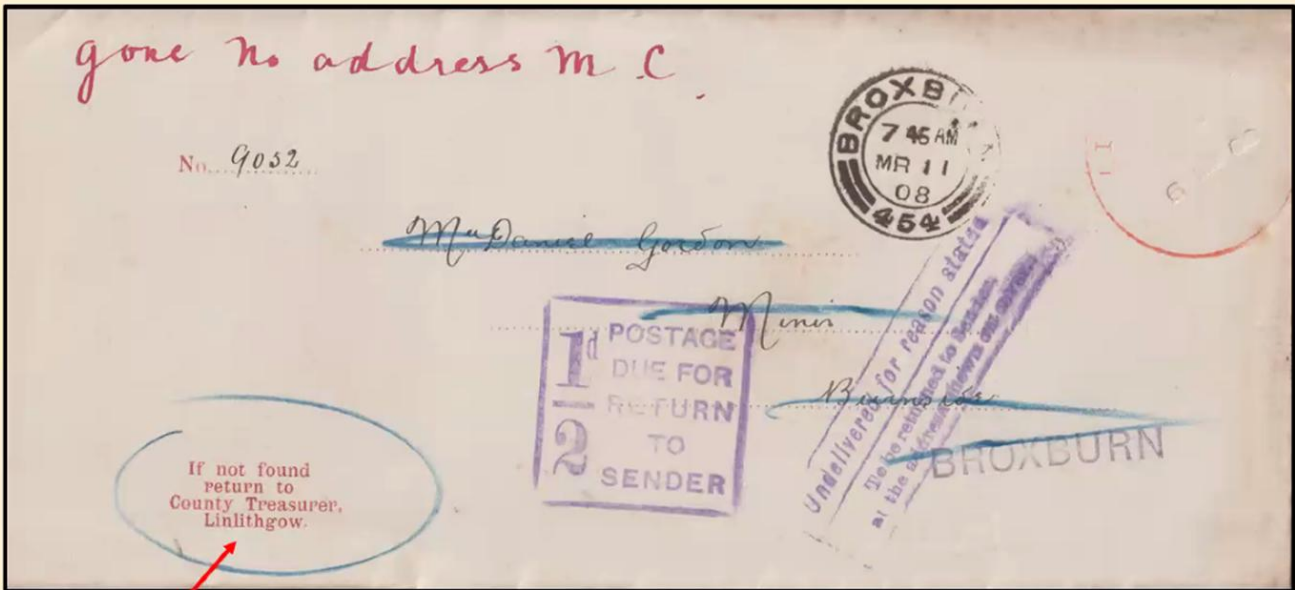 gone No address M.C.
No. 9052
BROXB
7 45 AM
MR 11
08
454
Daniel Gordon
Miner
Burnside
BROXBURN
1d/2 POSTAGE
DUE FOR
RETURN
TO
SENDER
Undelivered for reason stated
To be returned to Sender
at the address shown on cover.
If not found
return to
County Treasurer,
Linlithgow.